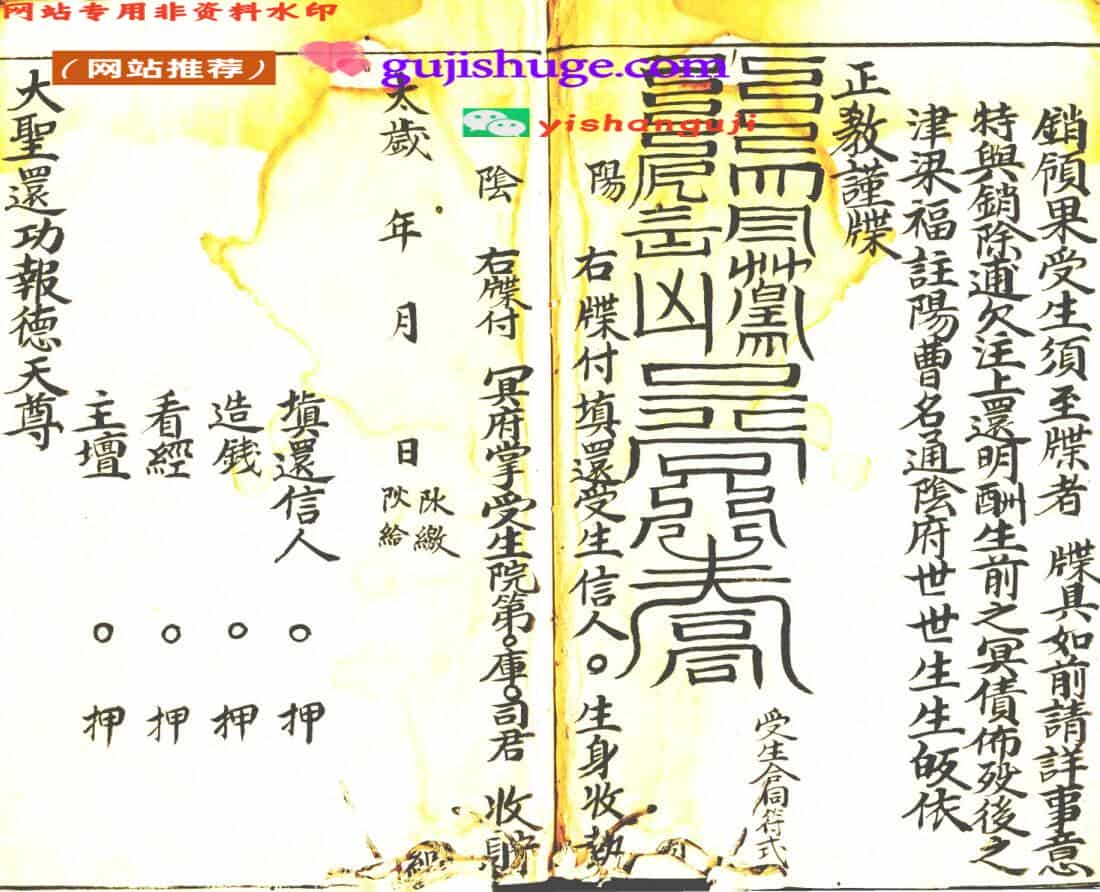 网站专用非资料水印
（网站推荐）
gujishuge.com
yishanguji
銷領果受生須至牒者　牒具如前請詳事意
特與銷除逋欠注上還明酬生前之冥債佈歿後之
津梁福註陽曹名通陰府世世生生皈依
正教謹牒
受生合同符式
陽　右牒付填還受生信人○生身收執
陰　右牒付　冥府掌受生院第○庫○司君　收
太歲　年　月　日
填還信人　○　押
造銭　○　押
看經　○　押
主壇　○　押
大聖還功報德天尊